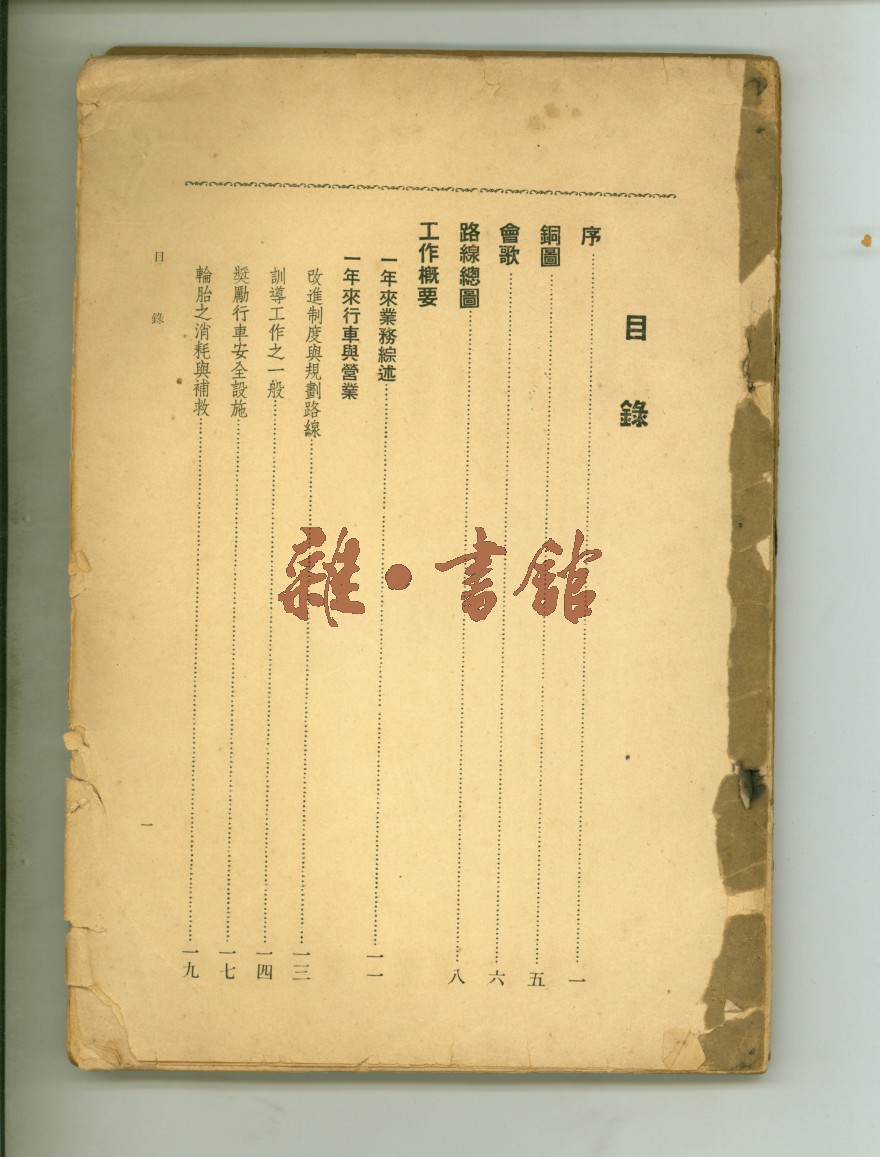 目錄
序……一
銅圖……五
會歌……六
路線總圖……八
工作概要
一年來業務綜述……一一
一年來行車與營業
改進制度與規劃路線……一三
訓導工作之一般……一四
獎勵行車安全設施……一七
輪胎之消耗與補救……一九
目錄
一
雜·書館